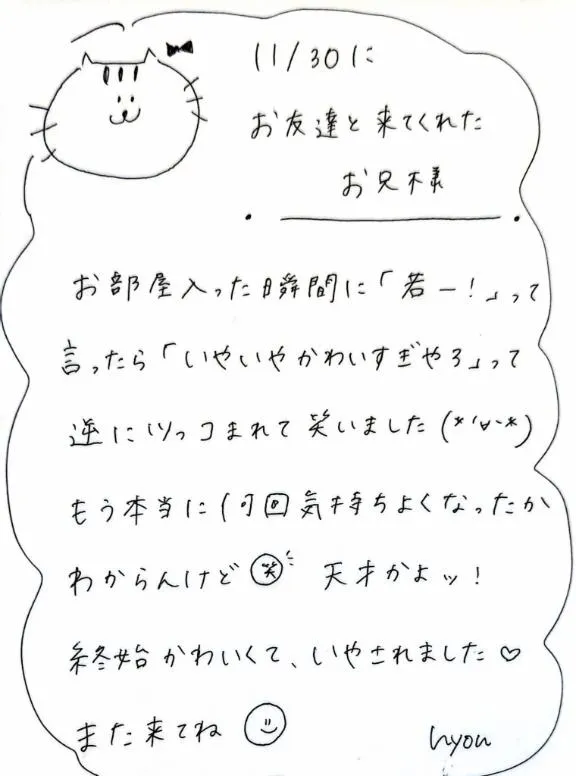 11/30に
お友達と来てくれた
お兄様
お部屋入った瞬間に「若ー!」って
言ったら「いやいやかわいすぎやろ」って
逆にツっコまれて笑いました(*'∀'*)
もう本当に何回気持ちよくなったか
わからんけど 笑 天才かよッ!
終始かわいくて、いやされました♡
また来てね